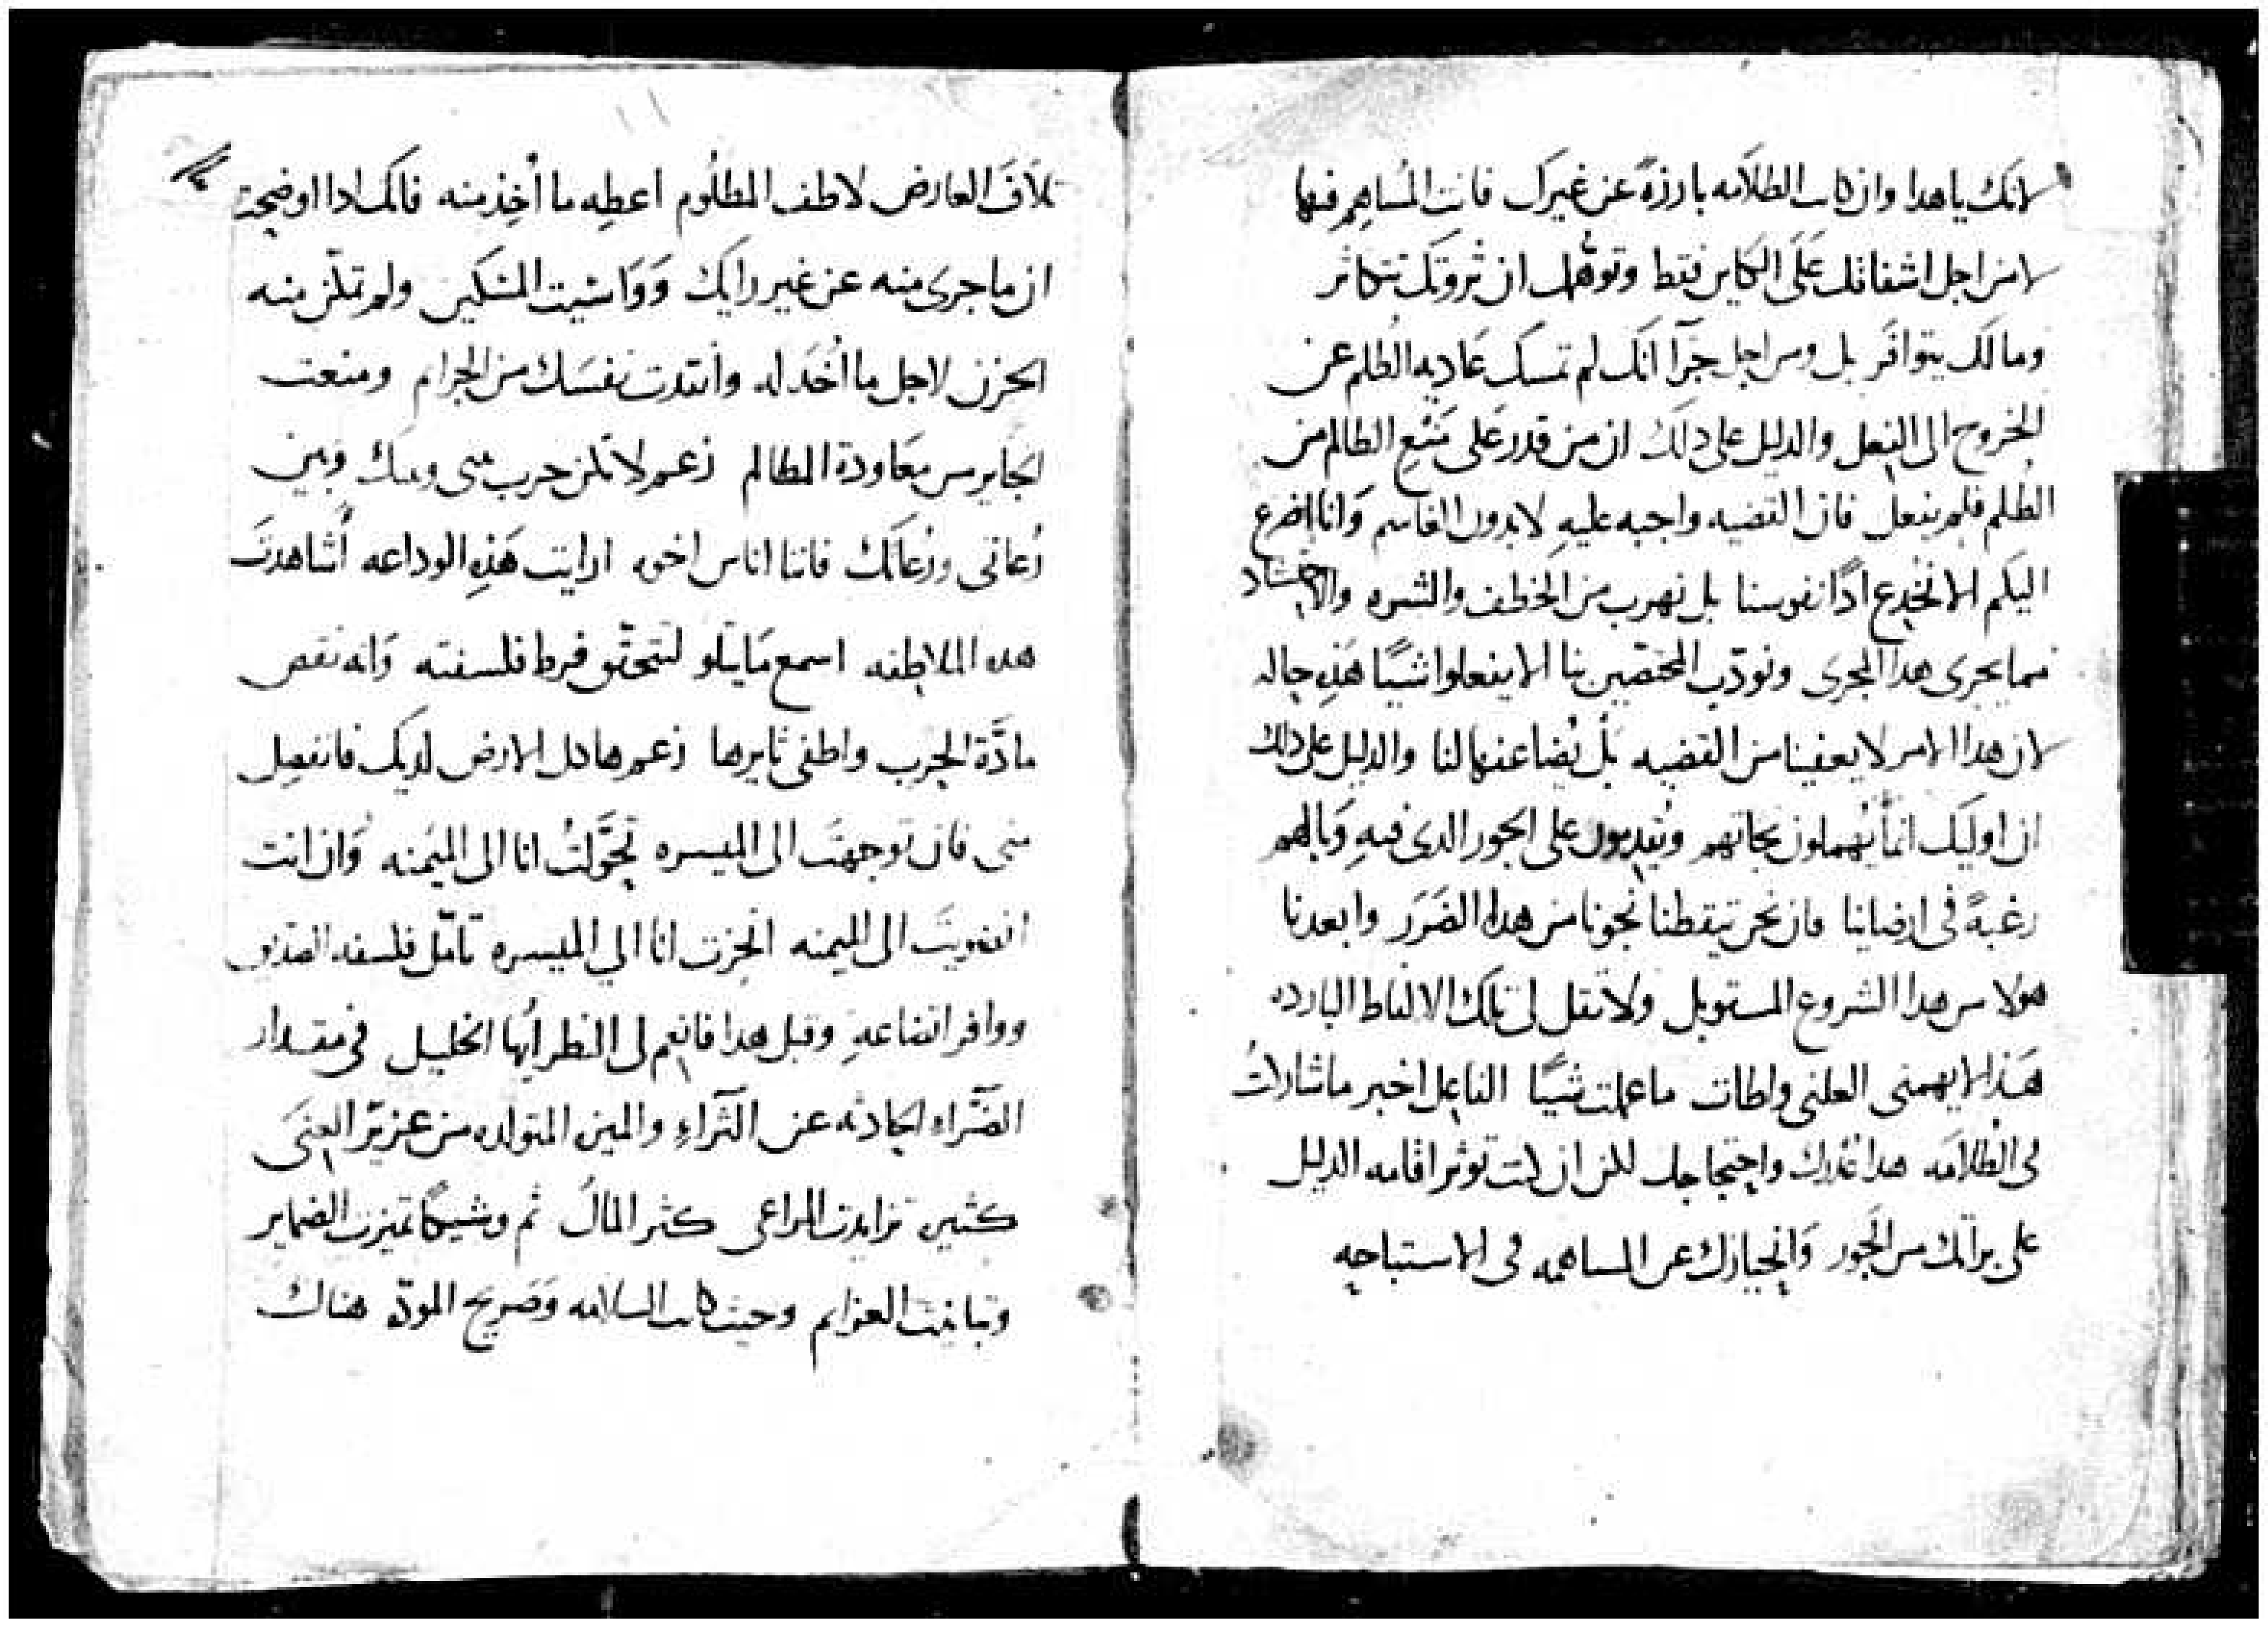 لانك ياهدا وان كانت الطلامه بارزةً عن غيرك فانت المُساهِم فيها
لا من اجل اشفاقك عَلَى الكاين فقط وتوهُّمك ان ثروتك تتكاثر
ومالك يتوافَر بل ومن اجل جَرآ انك لم تمسك عَاديه الظلم عن
الخروج الى الفعل والدليل على دلك ان من قدر عَلى مَنْع الطالم من
الظلم فلم يفعل فان القضيه واجبه عليهِ لا بدون الغاسم وَانا اضرع
اليكم الا نخدع ادًا نفوسنا بل نهرب من الخطف والشره
مما يجرى هدا المجرى ونودّب المختصّين بنا الا يفعلوا شيًا هَذِهِ حاله
لان هدا الامر لا يعفينا من القضيه بَل يُضاعفها لنا والدليل على دلك
ان اوليَك انمَا يُهملون نجاتهم ويُقدِمون على الجور الدى فيهِ وَبالهم
رغبةً فى ارضاينا فان نحن تيقظنا نجونا من هدا الضَرَر وابعدنا
هولا من هدا الشروع المستوبل ولا تقل لى تلك الالفاظ البارده
هَذا لا يهمنى ما عملت شيًا الفاعل اخبر ما شاركتُ
فى الظلامه هدا عُدرك واحتجاجك لكن ان كنت توثر اقامه الدليل
على براتك من الجَور وَانحيازك عن المساهمه فى الاستباحه
تلافَ العارض لاطف المظلُوم اعطِه ما أُخِذ منه فانك ادا اوضحت
ان ما جرى منه عن غير رايك وَوَاسَيت المسكين ولم تمكّن منه
الحزن لاجل ما اُخَد له وانقدت نفسَك من الجرايم ومنعت
الجاير من معَاودة المظالم زعم لا تكن حرب بينى وبينك وبين
رُعاتى ورُعَاتك فاننا اناس اخوه ارايت هَذِهِ الوداعه أشاهدتَ
هده الملاطفه اسمع مَا يَتلو لتتحقّق فرط فلسفته وَانه نقص
مادَّة الحرب واطفى نايرها زعم ها كل الارض لديك فانفصِل
منى فان توجهتَ الى الميسره تحَوَّلتُ انا الى الميَمنه وَان انت
انضويتَ الى الميمنه انحزت انا الى الميسره تامّل فلسفه الصديق
ووافر اتضاعهِ وقبل هدا فانعِم لى النظر ايُّها الخليل فى مقدار
الضّرّاء الحادثه عن الثراءِ والمين المتولده من عزيز الغِنَى
كثيره تزايدت المراعى كثر المالُ ثم وشيكًا تميزت الضماير
وتباينت العزايم وحيث كانت السلامه وَصريح المودّه هناك